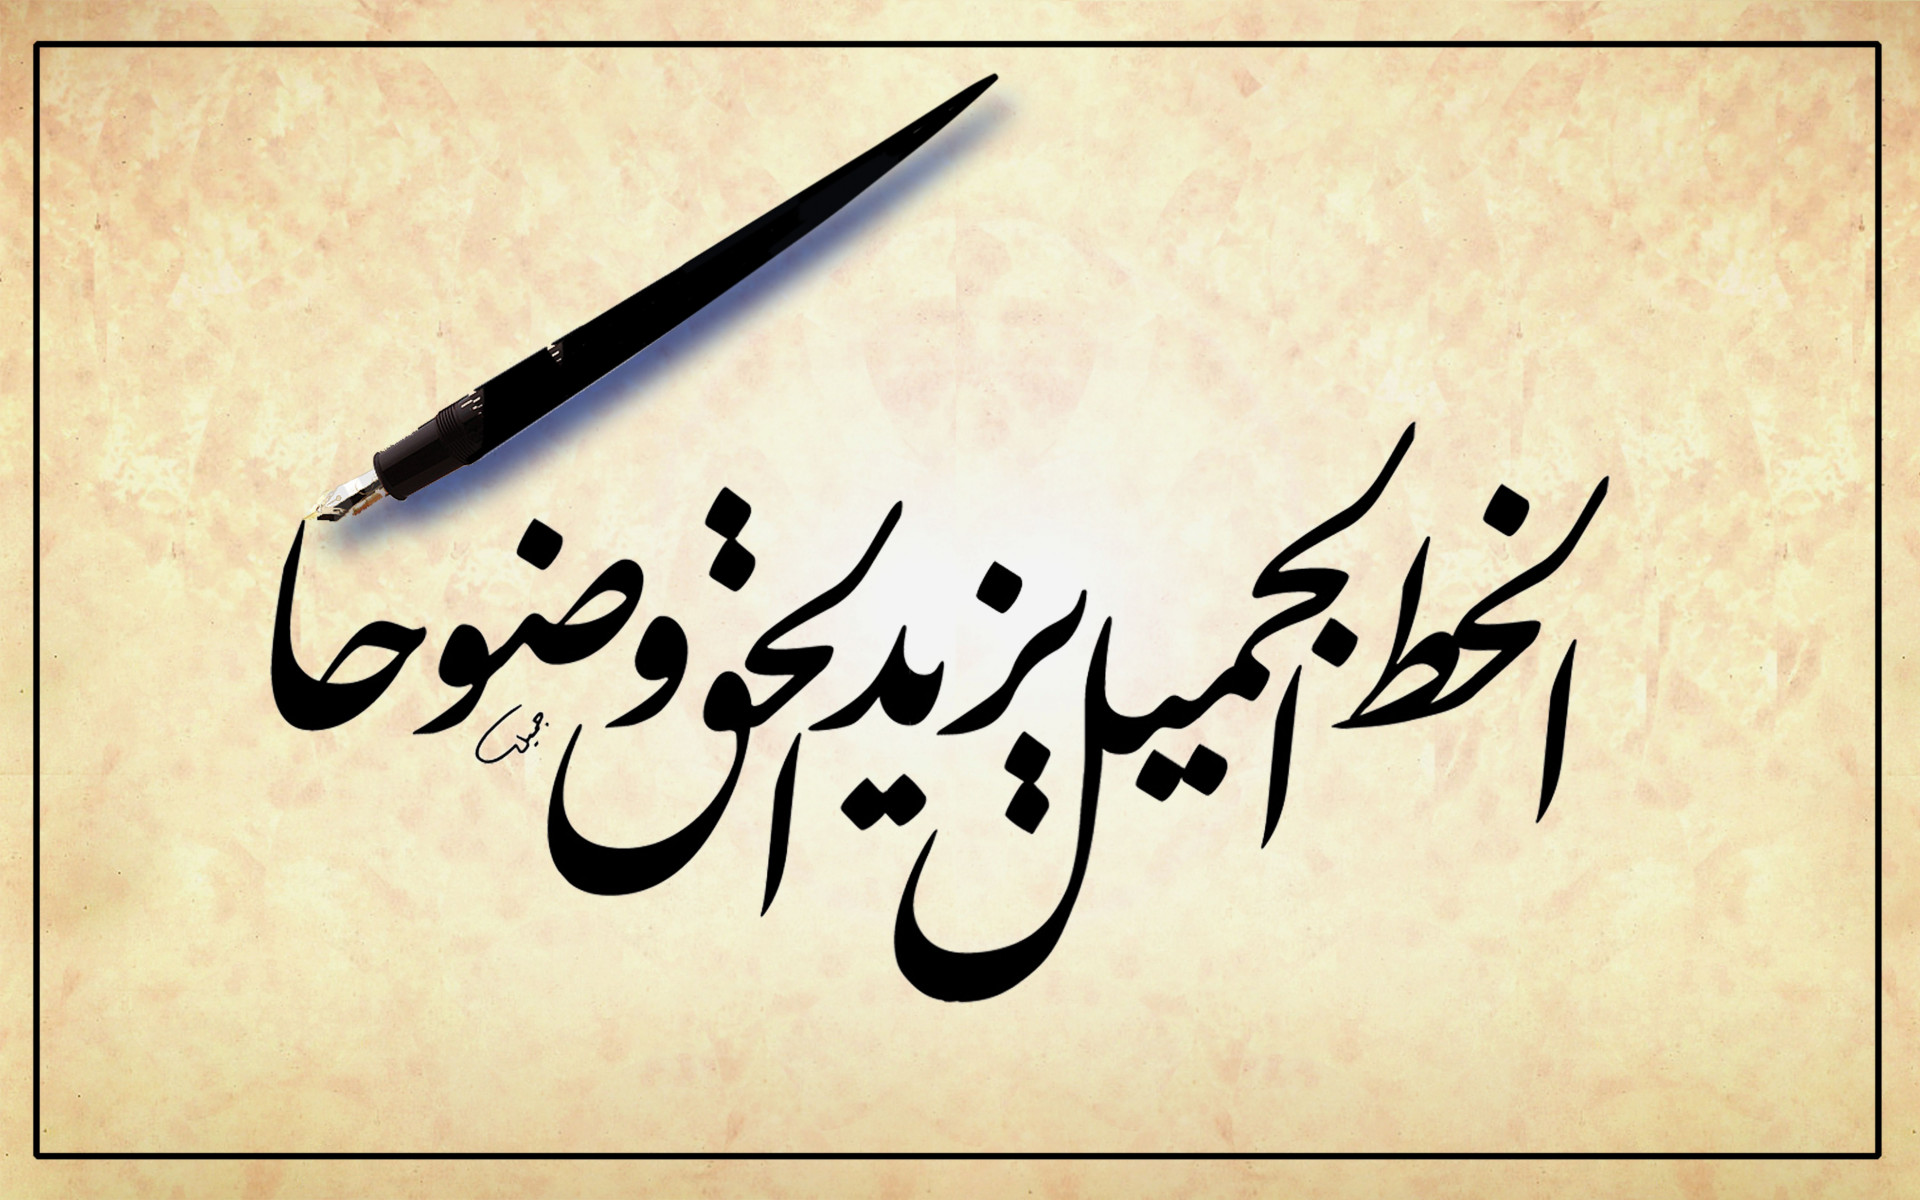 الخط الجميل يزيد الحق وضوحا
جميل